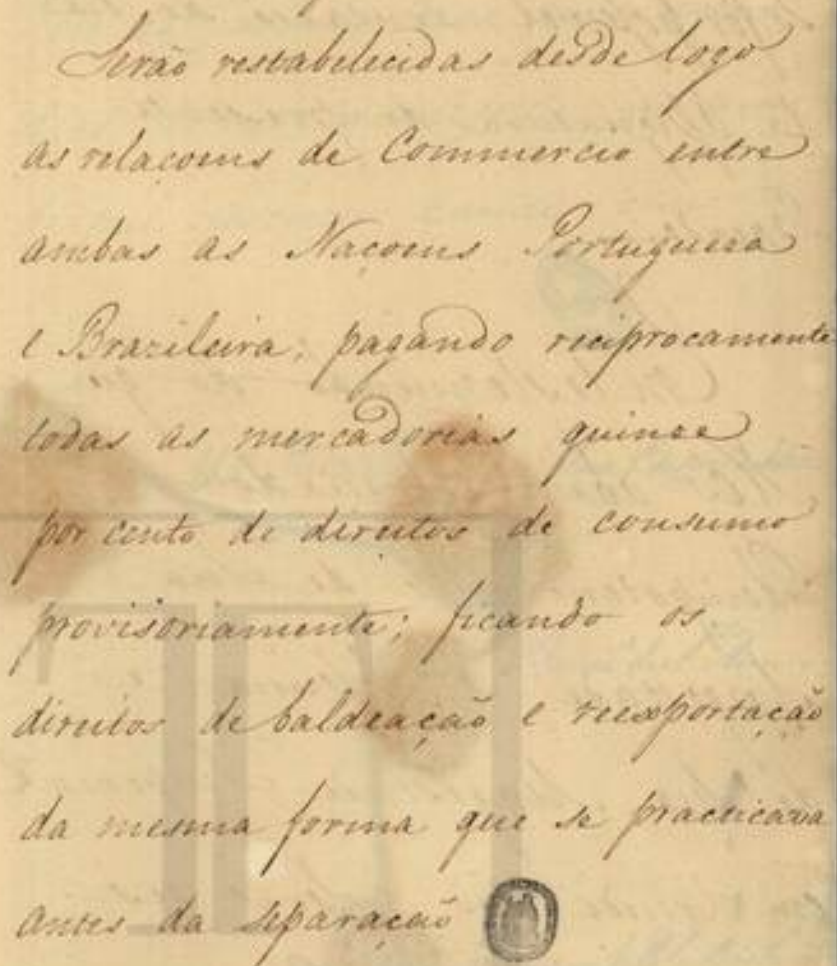 Serão restabelecidas desde logo
as relaçoens de Commercio entre
ambas as Naçoens Portugueza
e Brazileira; pagando reciprocamente
todas as mercadorias quinze
por cento de direitos de consumo
provisoriamente; ficando os
direitos de baldeação e reexportação
da mesma forma que se practicava
antes da separação